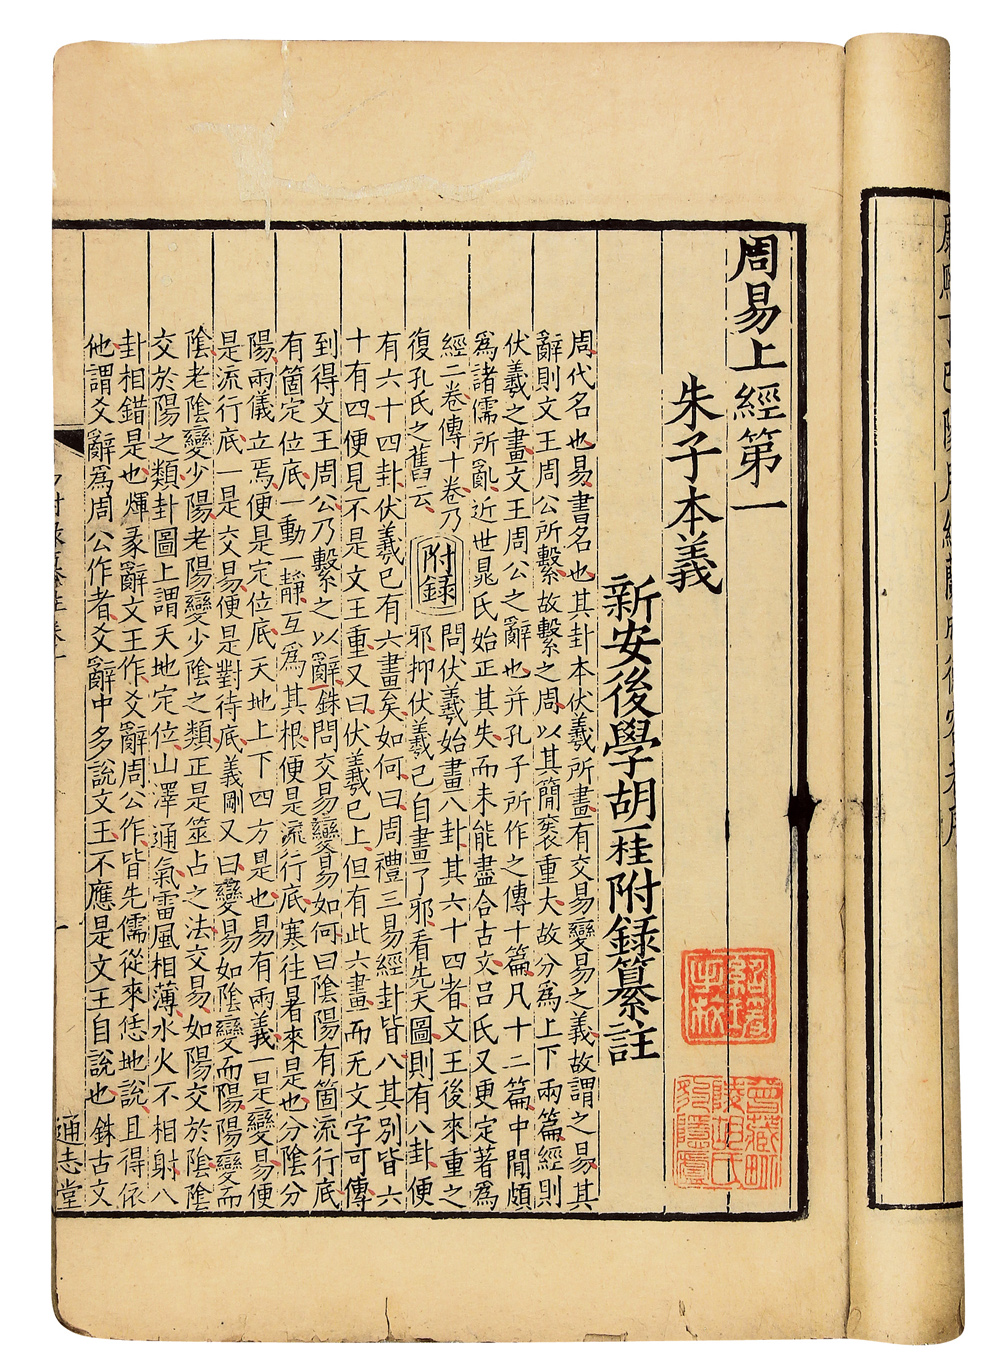 康熙丁巳
周易上經第一
朱子本義
新安後學胡一桂附録纂註
周代名也易書名也其卦本伏羲所畫有交易變易之義故謂之易其
辭則文王周公所繫故繫之周以其簡袠重大故分爲上下兩篇經則
伏羲之畫文王周公之辭也并孔子所作之傳十篇凡十二篇中間頗
爲諸儒所亂近世晁氏始正其失而未能盡合古文吕氏又更定著爲
經二卷傳十卷乃
復孔氏之舊云
附録
問伏羲始畫八卦其六十四者文王後來重之
邪抑伏羲已自畫了邪看先天圖則有八卦便
有六十四卦伏羲已有六畫矣如何曰周禮三易經卦皆八其别皆六
十有四便見不是文王重又曰伏羲已上但有此六畫而无文字可傳
到得文王周公乃繫之以辭銖問交易變易如何曰陰陽有箇流行底
有箇定位底一動一靜互爲其根便是流行底寒往暑來是也分陰分
陽兩儀立焉便是定位底天地上下四方是也易有兩義一是變易便
是流行底一是交易便是對待底義剛又曰變易如陰變而陽陽變而
陰老陰變少陽老陽變少陰之類正是筮占之法交易如陽交於陰陰
交於陽之類卦圖上謂天地定位山澤通氣雷風相薄水火不相射八
卦相錯是也煇彖辭文王作爻辭周公作皆先儒從來恁地說且得依
他謂爻辭爲周公作者爻辭中多說文王不應是文王自說也銖古文
通志堂